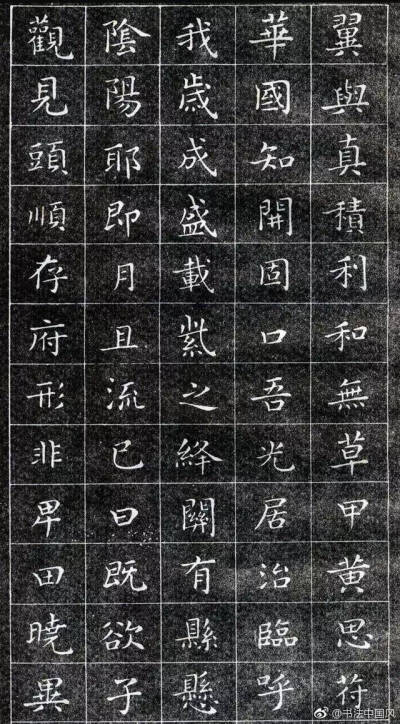 翼與真積利和無草甲黄思苻
華國知開固口吾光居治臨呼
我歲成盛載紫之絳關有縣懸
陰陽耶即月且流已曰既欲子
觀見頭順存府形非畢田曉畢
@书法中国风